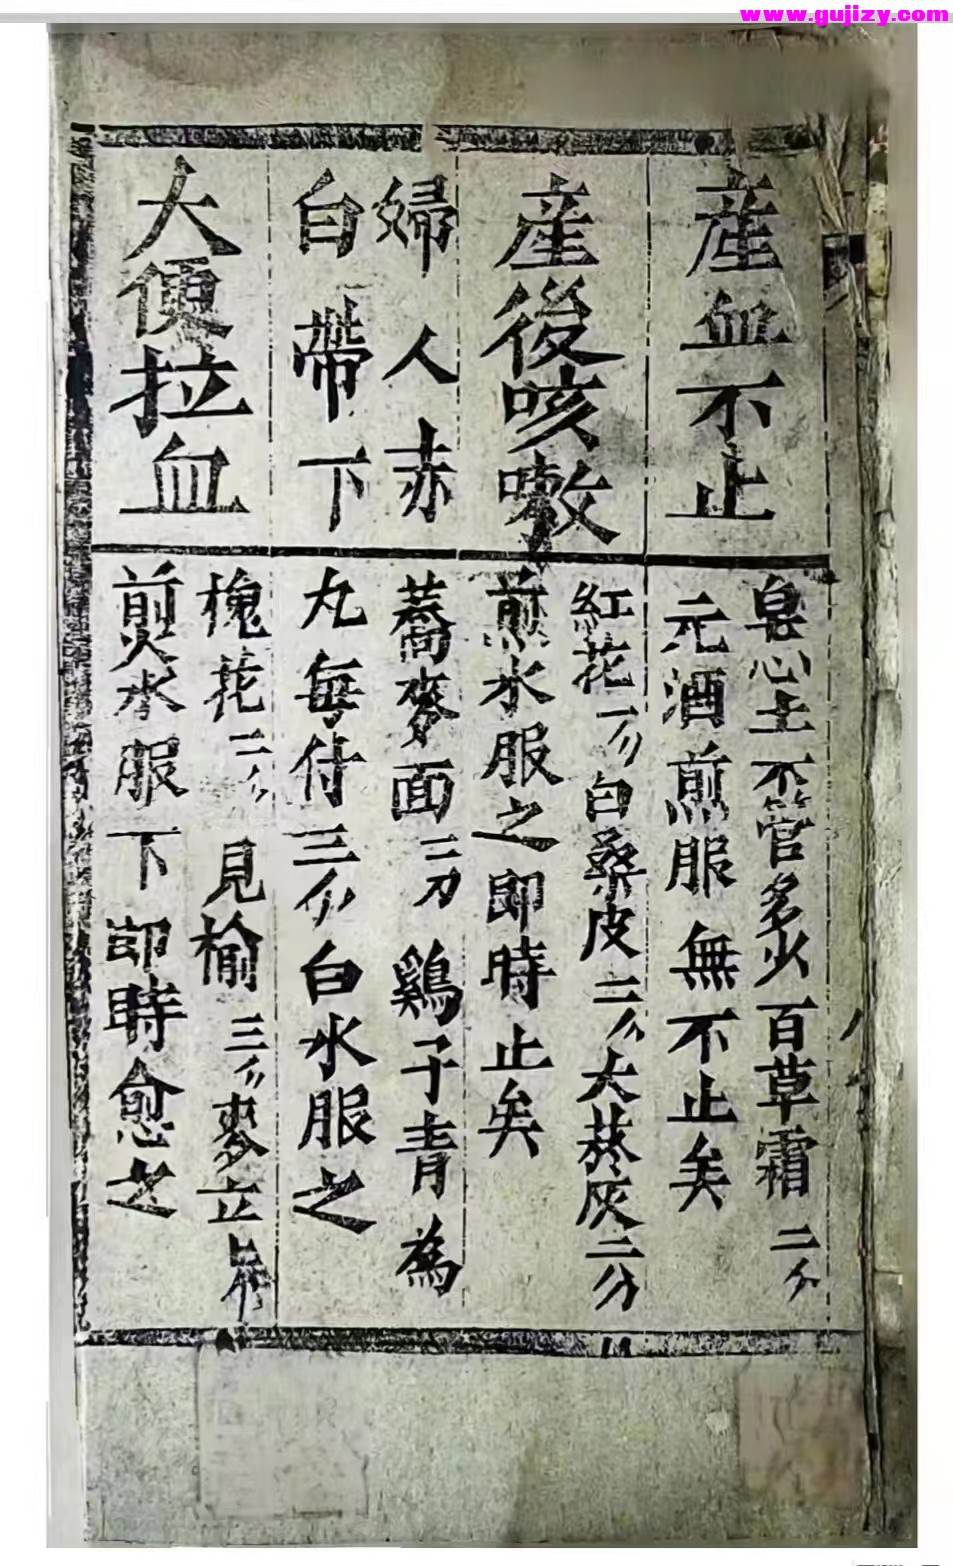 www.gujizy.com
産血不止
皂心土不管多少百草霜二分
元酒煎服無不止矣
産後咳嗽
紅花一分白桑皮二分大灰二分
煎水服之即時止矣
婦人赤
白帶下
蕎麥面三刀鷄子青為
丸每付三分白水服之
大便拉血
槐花二分見榆三分麥立
煎水服下即時愈之